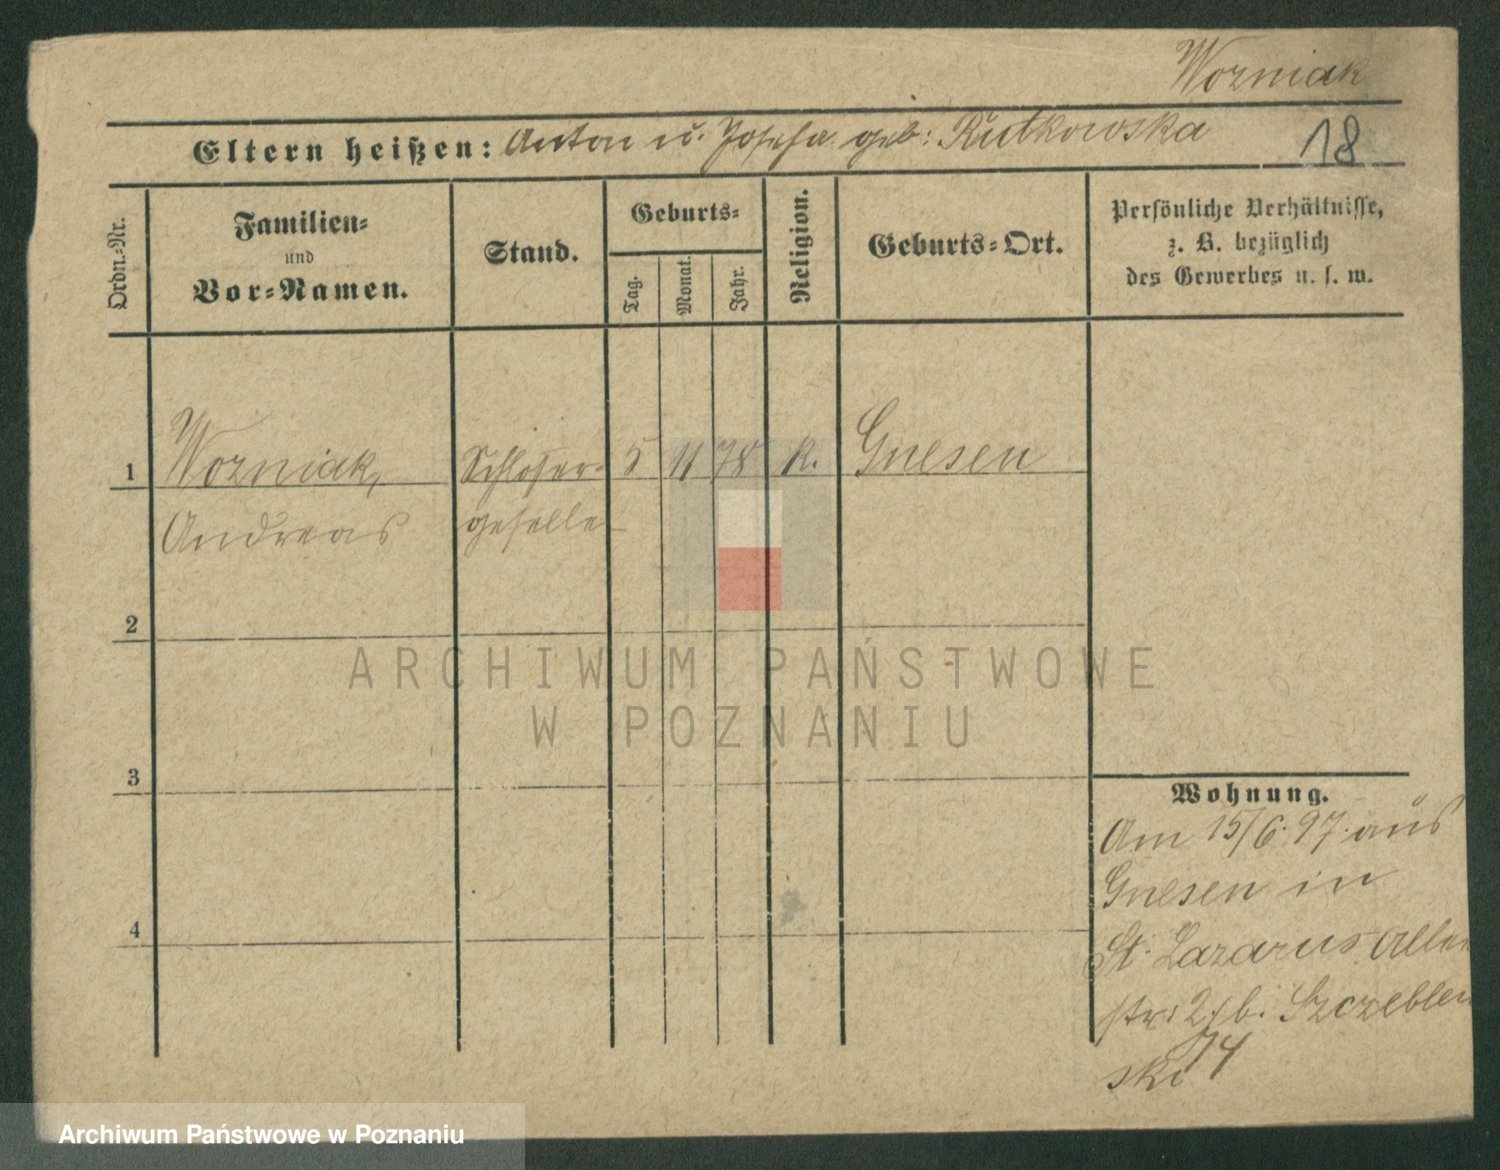 Wozniak
Eltern heißen: Anton u. Josefa geb: Rutkowska
18
Ordn.-Nr.
Familien-
und
Vor-Namen.
Stand.
Geburts-
Tag.
Monat.
Jahr.
Religion.
Geburts-Ort.
Persönliche Verhältnisse,
z. B. bezüglich
des Gewerbes u. s. w.
1 Wozniak, Schlosser- 5 11 78 k. Gnesen
Andreas geselle
2
3
4
Wohnung.
Am 15/6. 97. aus
Gnesen in
St. Lazarus
str: b.
ski
ARCHIWUM PAŃSTWOWE
W POZNANIU
Archiwum Państwowe w Poznaniu